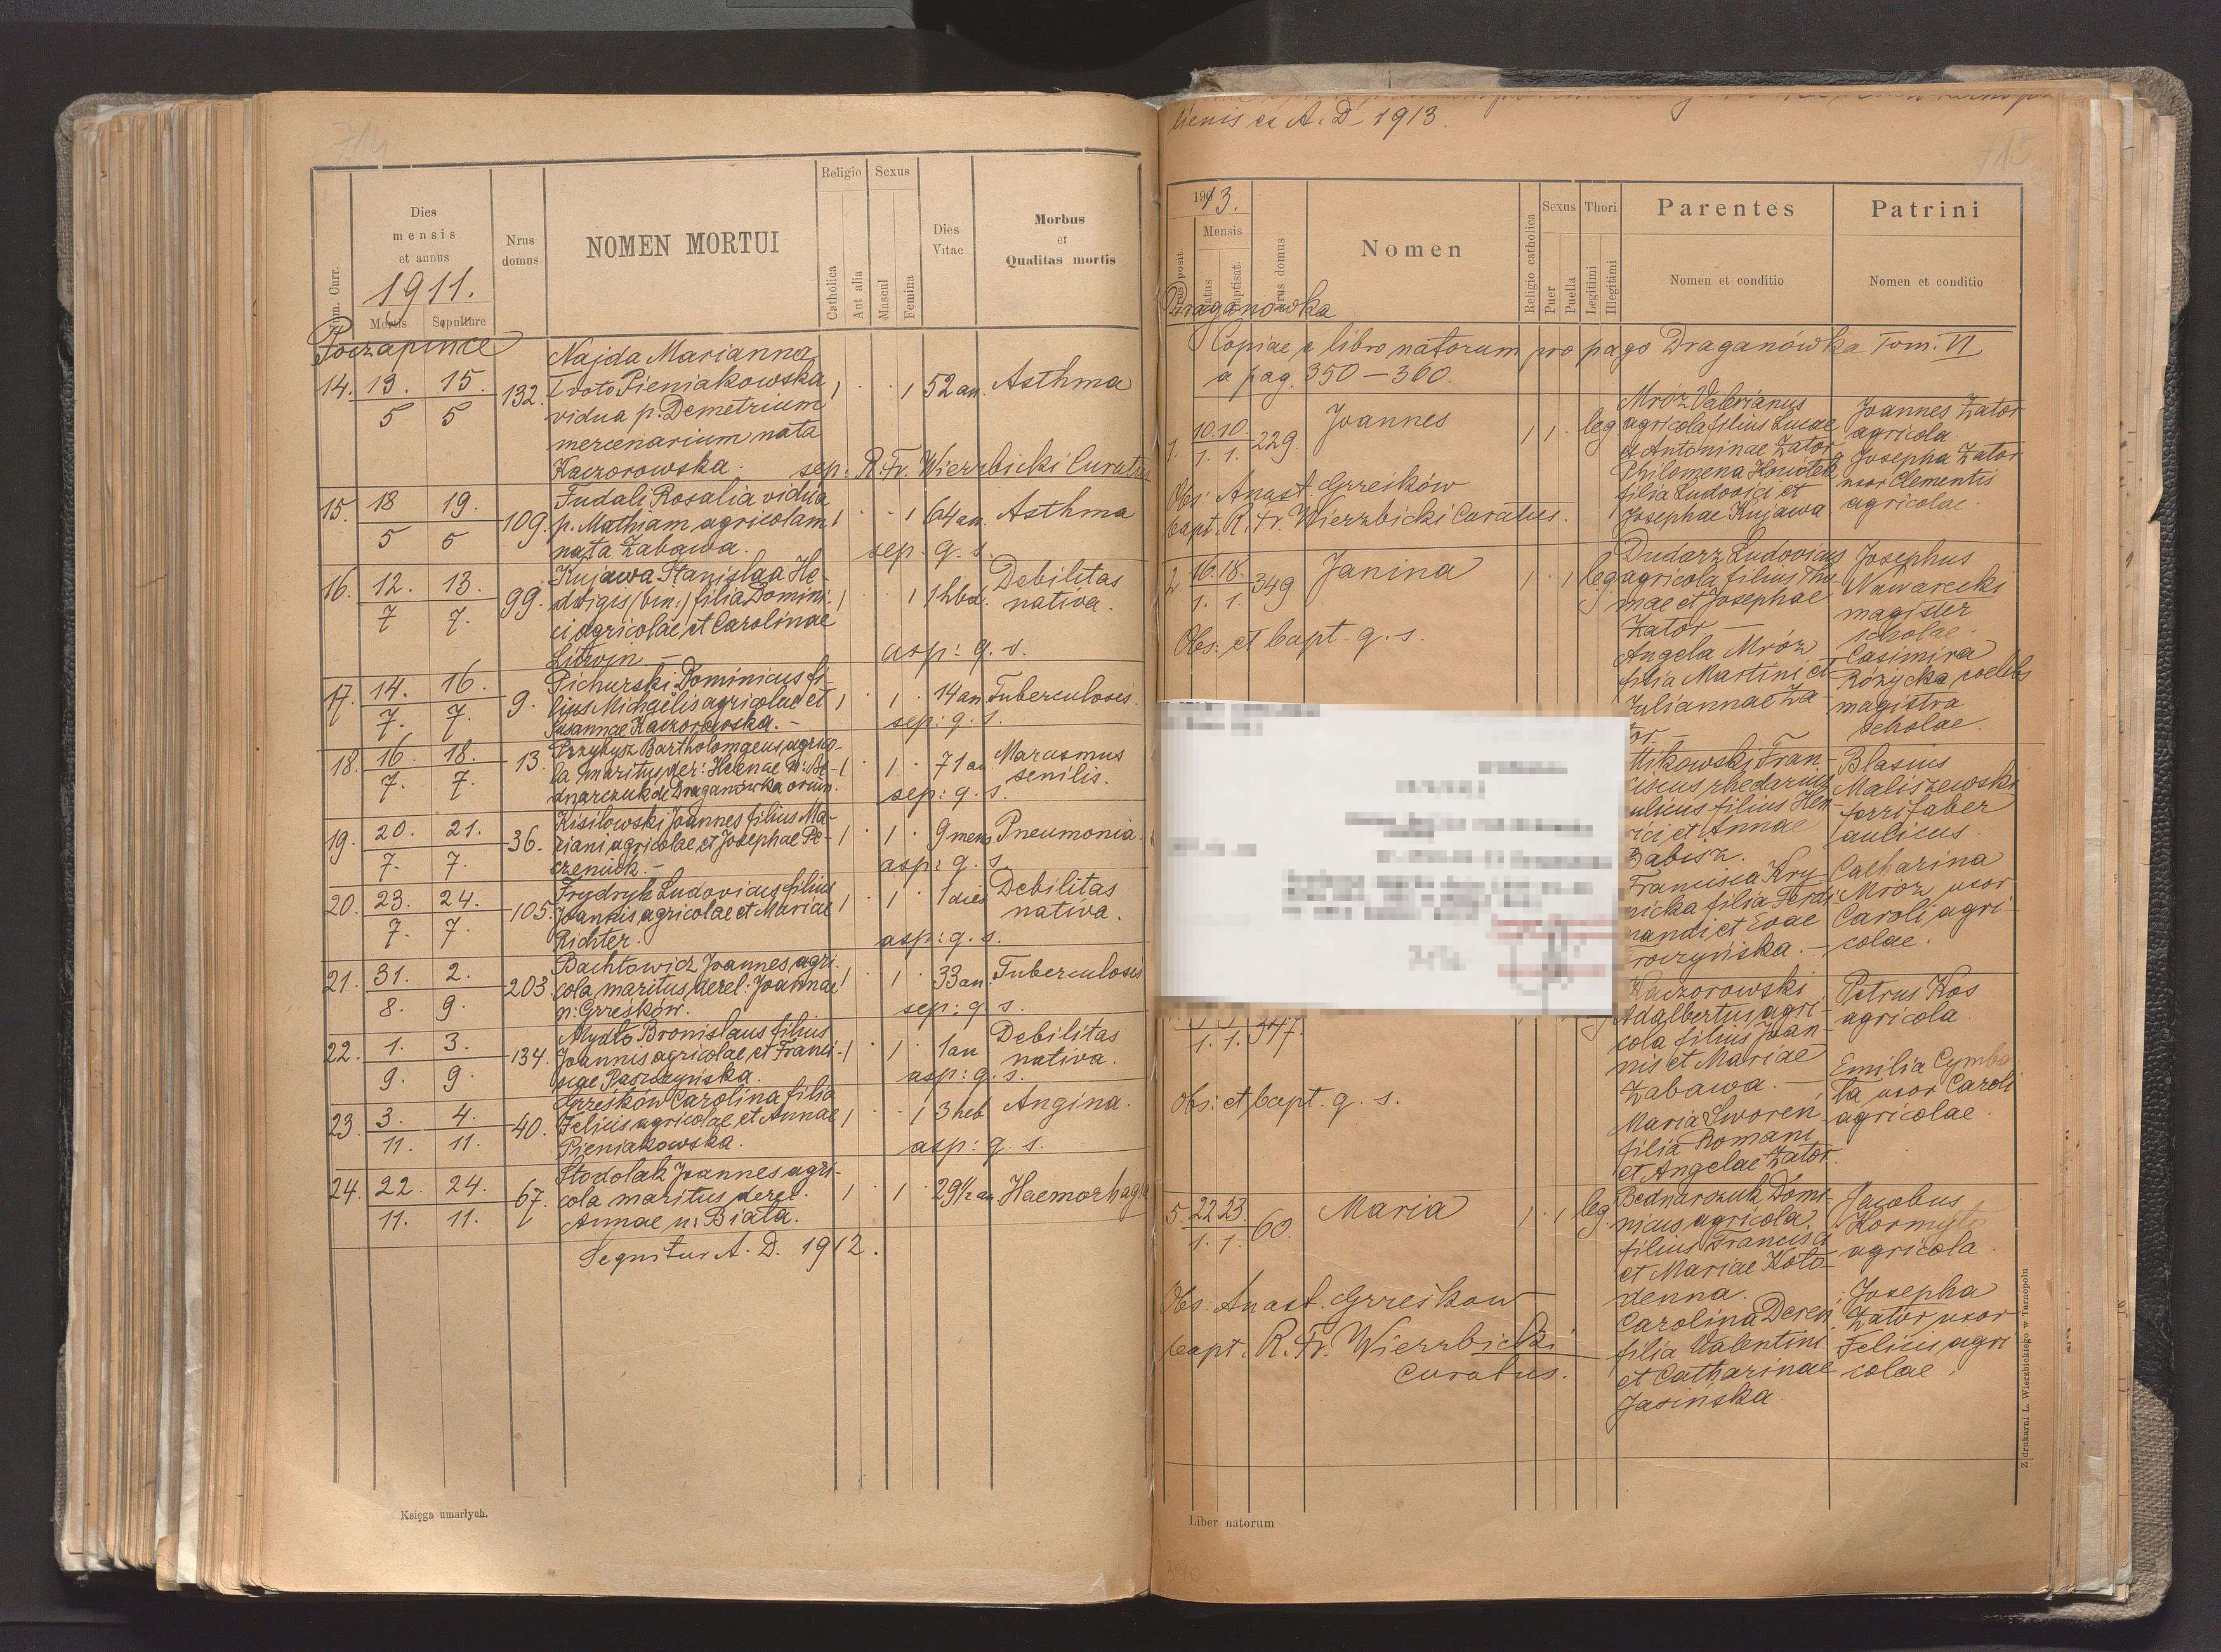 714
Dies
mensis
et annus
1911.
Mortis Sepulture
Num. Curr.
Nrus
domus
NOMEN MORTUI
Religio
Catholica
Aut alia
Sexus
Mascul
Femina
Dies
Vitae
Morbus
et
Qualitas mortis
Poczapince
14. 13. 15. 132. Najda Marianna
5 5 I voto Pieniakowska 1 1 52 an. Asthma
vidua p. Demetrium
mercenarium nata
Kaczorowska. sep: R. Fr. Wierzbicki Curatus
15. 18 19. 109. Fudali Rosalia vidua
5 5 p. Mathiam agricolam 1 1 64 an. Asthma
nata Zabawa. sep. q. s.
16. 12. 13. 99. Kujawa Stanislaa He-
7 7. dwigis (bin.) filia Domini- 1 1 1 hbd. Debilitas
ci agricolae et Carolinae nativa.
Litwin — asp: q. s.
17. 14. 16. 9. Pichurski Dominicus fi-
7. 7. lius Michaelis agricolae et 1 1 14 an Tuberculosis.
Susannae Kaczorowska. — sep: q. s.
18. 16. 18. 13. Przybysz Bartholomaeus agrico-
7. 7. la maritus der: Helenae n: Be- 1 1 71 an Marasmus
dnarczuk de Draganówka oriun. senilis.
sep: q. s.
19. 20. 21. 36. Kisilowski Joannes filius Ma-
7. 7. riani agricolae et Josephae Pe- 1 1 9 mens. Pneumonia.
czeniuk. — asp: q. s.
20. 23. 24. 105. Frydryk Ludovicus filius
7. 7. Joannis agricolae et Mariae 1 1 1 dies Debilitas
Richter. nativa.
asp: q. s.
21. 31. 2. 203. Bachtowicz Joannes agri-
8. 9. cola maritus derel: Joannae 1 1 33 an. Tuberculosis
n: Grześków. sep: q. s.
22. 1. 3. 134. Mydło Bronislaus filius
9. 9. Joannis agricolae et Franci- 1 1 1 an Debilitas
scae Paszczyńska. nativa.
asp: q. s.
23. 3. 4. 40. Grześków Carolina filia
11. 11. Felicis agricolae et Annae 1 1 3 heb Angina.
Pieniakowska. asp: q. s.
24. 22. 24. 67. Stodolak Joannes agri-
11. 11. cola maritus derel. 1 1 29½ an Haemorhagia
Annae n: Biała.
Sequitur A. D. 1912.
Księga umarłych.
A. D. 1913.
715
1913.
Mensis
Nrus domus
Nomen
Religio catholica
Sexus
Puer
Puella
Thori
Legitimi
Illegitimi
Parentes
Nomen et conditio
Patrini
Nomen et conditio
Draganówka
Copiae e libro natorum pro pago Draganówka Tom. VI
a pag. 350 — 360.
1. 10. 10. 229. Joannes 1 1 leg
1. 1.
Mróz Valerianus
agricola filius Lucae
et Antoninae Zator
Philomena Kwiatek
filia Ludovici et
Josephae Kujawa
Joannes Zator
agricola.
Josepha Zator
uxor Clementis
agricolae.
Obs: Anast. Grześków
bapt. R. Fr. Wierzbicki Curatus.
2. 16. 18. 349 Janina 1 1 leg
1. 1.
Dudarz Ludovicus
agricola filius Tho-
mae et Josephae
Zator —
Angela Mróz
filia Martini et
Juliannae Za-
or. —
Josephus
Nawarecki
magister
scholae.
Casimira
Różycka coelebs
magistra
scholae.
Obs: et bapt. q. s.
ttikowski Fran-
ciscus rhedarius
aulicus filius Hen-
rici et Annae
Babisz.
Francisca Kry-
nicka filia Ferdi-
nandi et Evae
roczyńska. —
Blasius
Maliszewski
ferrifaber
aulicus.
Catharina
Mróz uxor
Caroli agri-
colae.
1. 1. 347.
Kaczorowski
Adalbertus agri-
cola filius Joan-
nis et Mariae
Zabawa. —
Maria Sworen
filia Romani
et Angelae Zator.
Petrus Kos
agricola
Emilia Cymba
ła uxor Caroli
agricolae.
Obs: et bapt. q. s.
5. 22. 23. 60. Maria 1 1 leg.
1. 1.
Bednarczuk Domi-
nicus agricola.
filius Francisci
et Mariae Koło-
denna.
Carolina Deren
filia Valentini
et Catharinae
Jasińska.
Jacobus
Kormyło
agricola.
Josepha
Zator uxor
Felicis agri
colae.
Obs: Anast. Grześkow
bapt. R. Fr. Wierzbicki
Curatus.
Liber natorum
Z drukarni L. Wierzbickiego w Tarnopolu